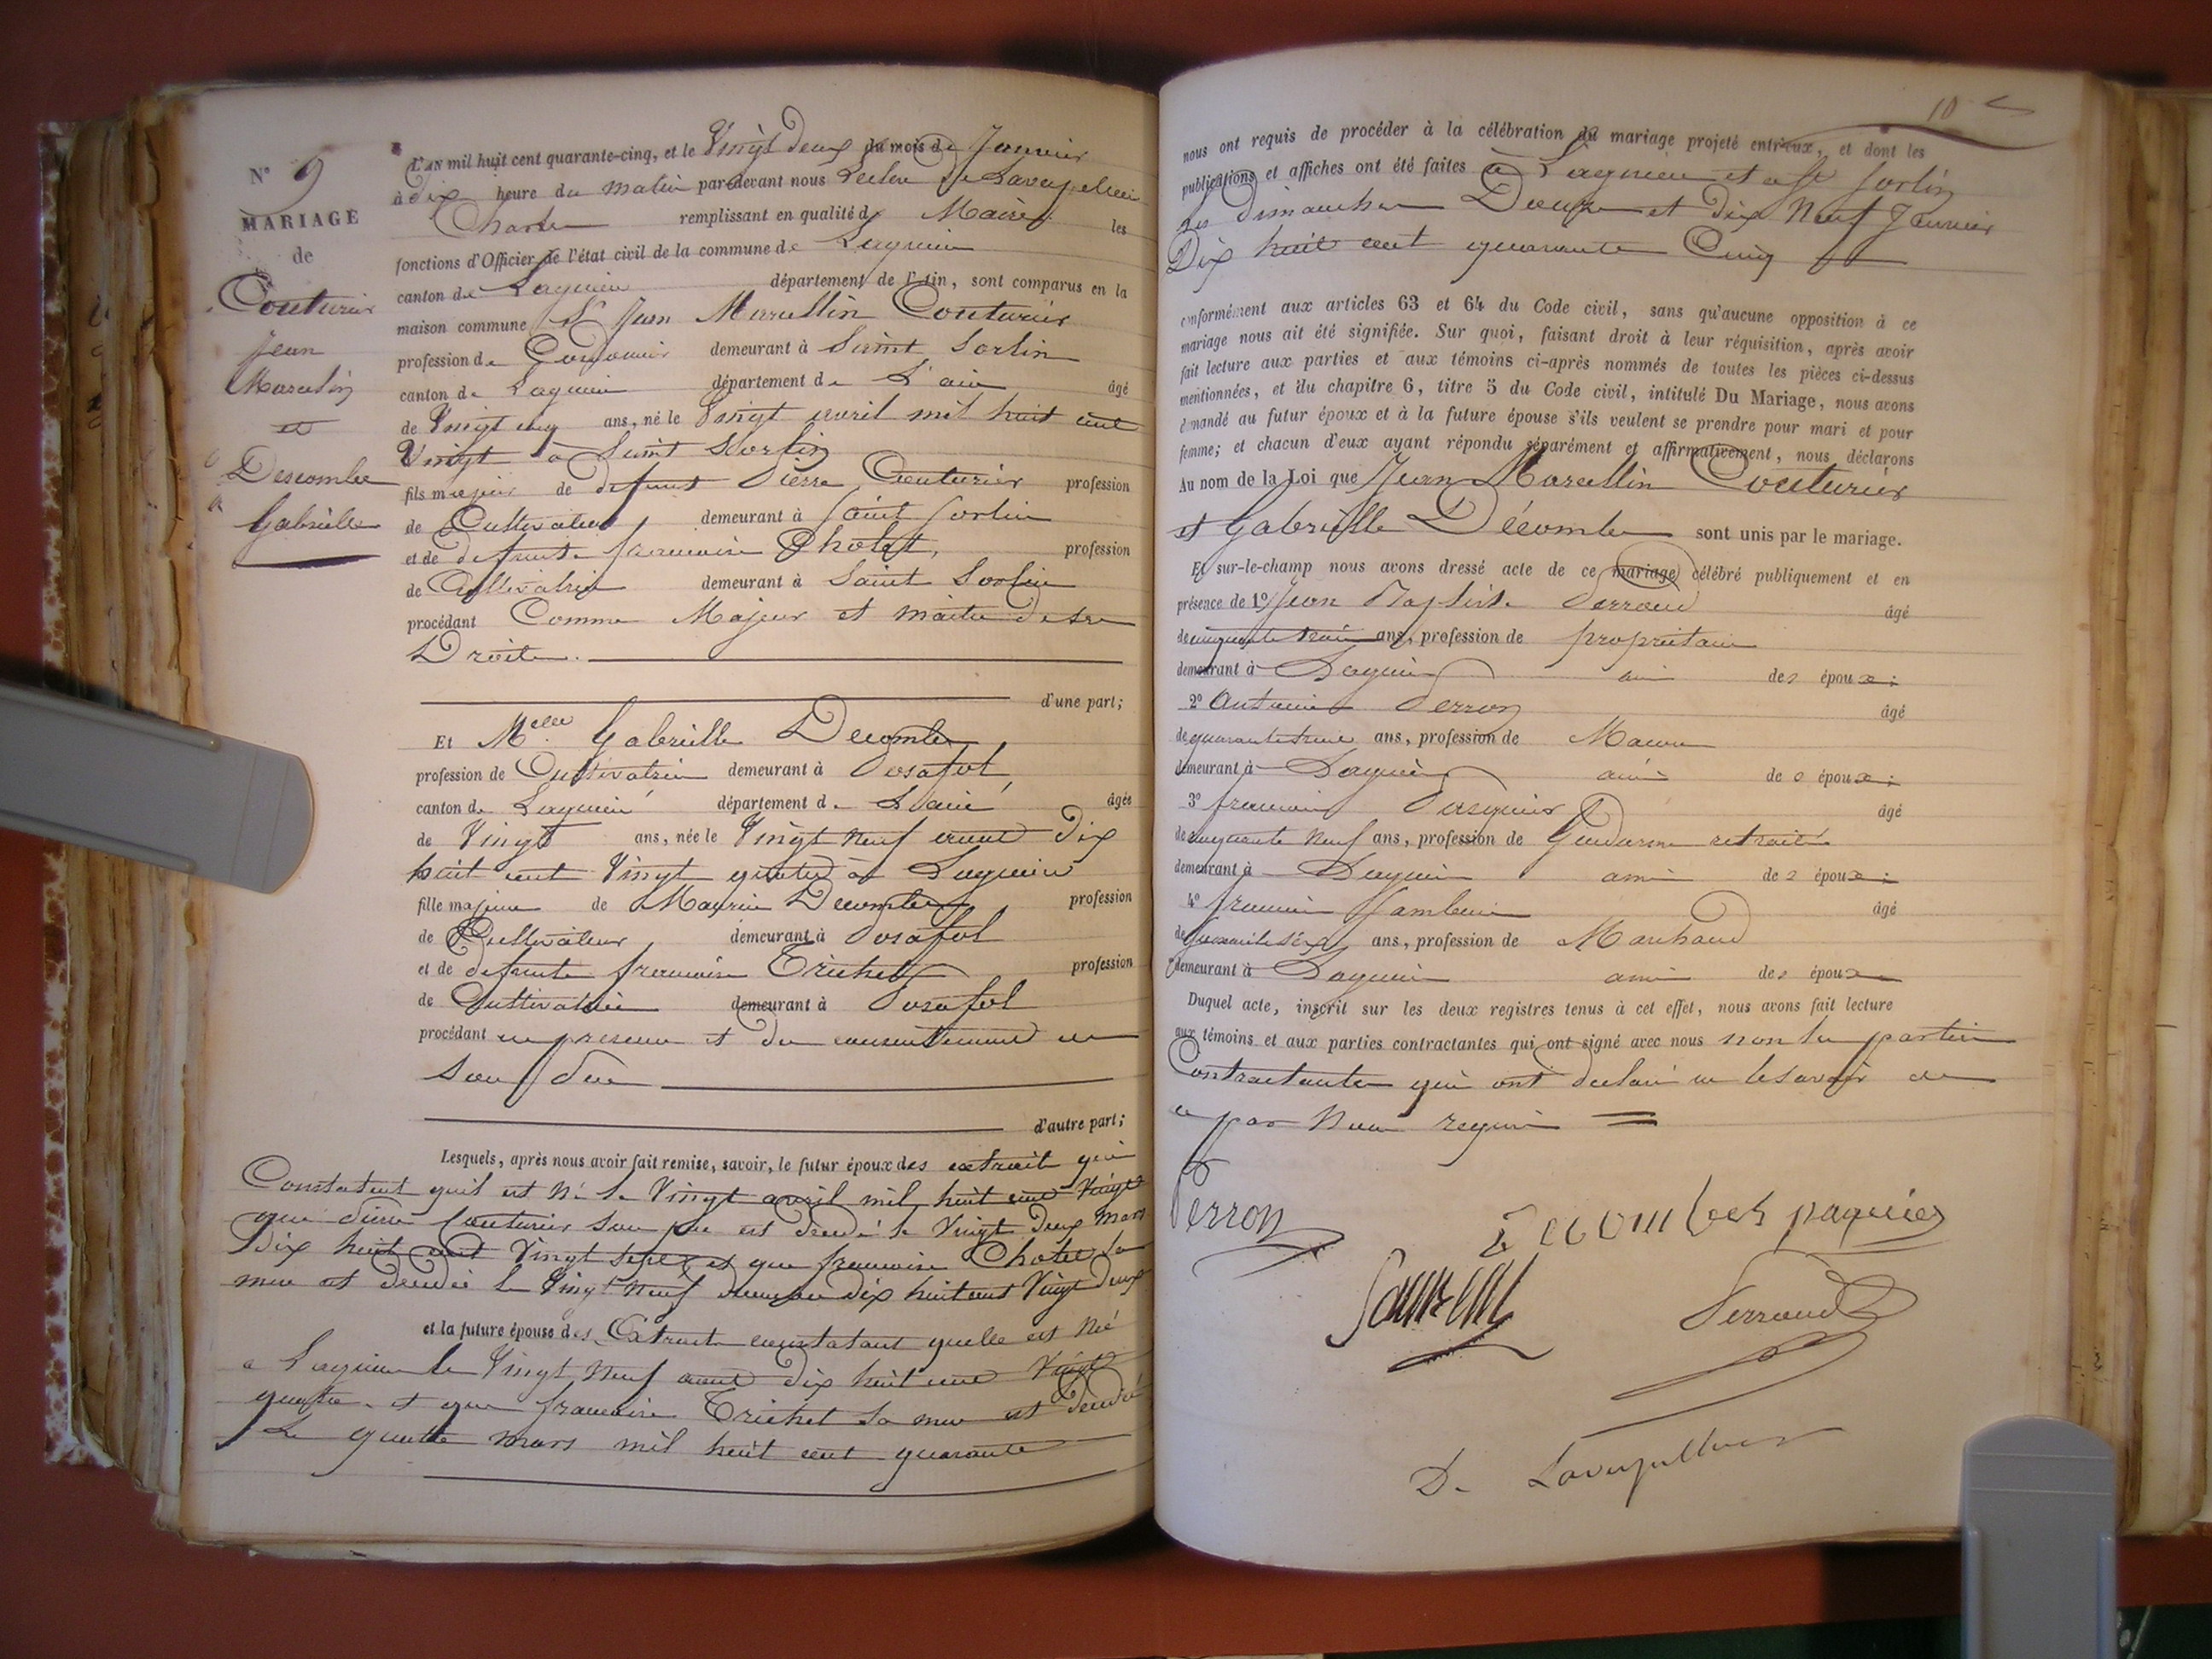 N° 9
MARIAGE
de
Couturier
Jean
Marcelin
et
Descombe
Gabrielle
L'AN mil huit cent quarante-cinq, et le Vingt deux du mois de Janvier
à dix heure du matin par-devant nous Leclere De Lavapellier
Charles remplissant en qualité de Maire les
fonctions d'Officier de l'état civil de la commune de Lagnieu
canton de Lagnieu département de l'Ain, sont comparus en la
maison commune Sr Jean Marcellin Couturier
profession de Cordonnier demeurant à Saint Sorlin
canton de Lagnieu département de L'ain âgé
de Vingt cinq ans, né le Vingt avril mil huit cent
Vingt à Saint Sorlin
fils majeur de defunt Pierre Couturier profession
de Cultivateur demeurant à Saint Sorlin
et de defunte francoise Cholet, profession
de Cultivatrice demeurant à Saint Sorlin
procédant Comme Majeur et maitre de ses
Droits.
d'une part;
Et Melle Gabrielle Decombe
profession de Cultivatrice demeurant à Posafol
canton de Lagnieu département de L'ain âgée
de Vingt ans, née le Vingt neuf aout dix
huit cent Vingt quatre à Lagnieu
fille majeure de Decombe profession
de Cultivateur demeurant à Posafol
et de defunte francoise Trichet profession
de Cultivatrice demeurant à Posafol
procédant en presence et du consentement de
Son Père
d'autre part;
Lesquels, après nous avoir fait remise, savoir, le futur époux des extraits qui
Constatent quil est Né le Vingt avril mil huit cent Vingt
que Pierre Couturier Son père est decedé le Vingt deux mars
dix huit cent Vingt sept et que francoise Cholet sa
mere est decedée le Vingt neuf dix huit cent Vingt deux
et la future épouse des Extraits constatant quelle est Née
a Lagnieu le Vingt Neuf aout dix huit cent Vingt
quatre et que francoise Trichet Sa mere est decedée
Le quatre mars mil huit cent quarante
10
nous ont requis de procéder à la célébration du mariage projeté entr'eux, et dont les
publications et affiches ont été faites à Lagnieu et a St Sorlin
les dimanches Douze et dix Neuf Janvier
Dix huit cent quarante Cinq
conformément aux articles 63 et 64 du Code civil, sans qu'aucune opposition à ce
mariage nous ait été signifiée. Sur quoi, faisant droit à leur réquisition, après avoir
fait lecture aux parties et aux témoins ci-après nommés de toutes les pièces ci-dessus
mentionnées, et du chapitre 6, titre 5 du Code civil, intitulé Du Mariage, nous avons
demandé au futur époux et à la future épouse s'ils veulent se prendre pour mari et pour
femme; et chacun d'eux ayant répondu séparément et affirmativement, nous déclarons
Au nom de la Loi que Jean Marcellin Couturier
et Gabrielle Décombe sont unis par le mariage.
Et sur-le-champ nous avons dressé acte de ce mariage célébré publiquement et en
présence de 1° Jean Baptiste Perraud âgé
de cinquante trois ans, profession de propriétaire
demeurant à Lagnieu ami des époux;
2° Antoine Perron âgé
de quarante trois ans, profession de Macon
demeurant à Lagnieu ami des époux;
3° francois Pasquier âgé
de cinquante Neuf ans, profession de Gendarme retraité
demeurant à Lagnieu ami des époux;
4° francois Jambon âgé
de ans, profession de Marchand
demeurant à Lagnieu ami des époux
Duquel acte, inscrit sur les deux registres tenus à cet effet, nous avons fait lecture
aux témoins et aux parties contractantes qui ont signé avec nous non les parties
Contractantes qui ont declaré ne le savoir de
ce par Nous requis
Perron
Decombes paquier
Perraud
De Lavapellier